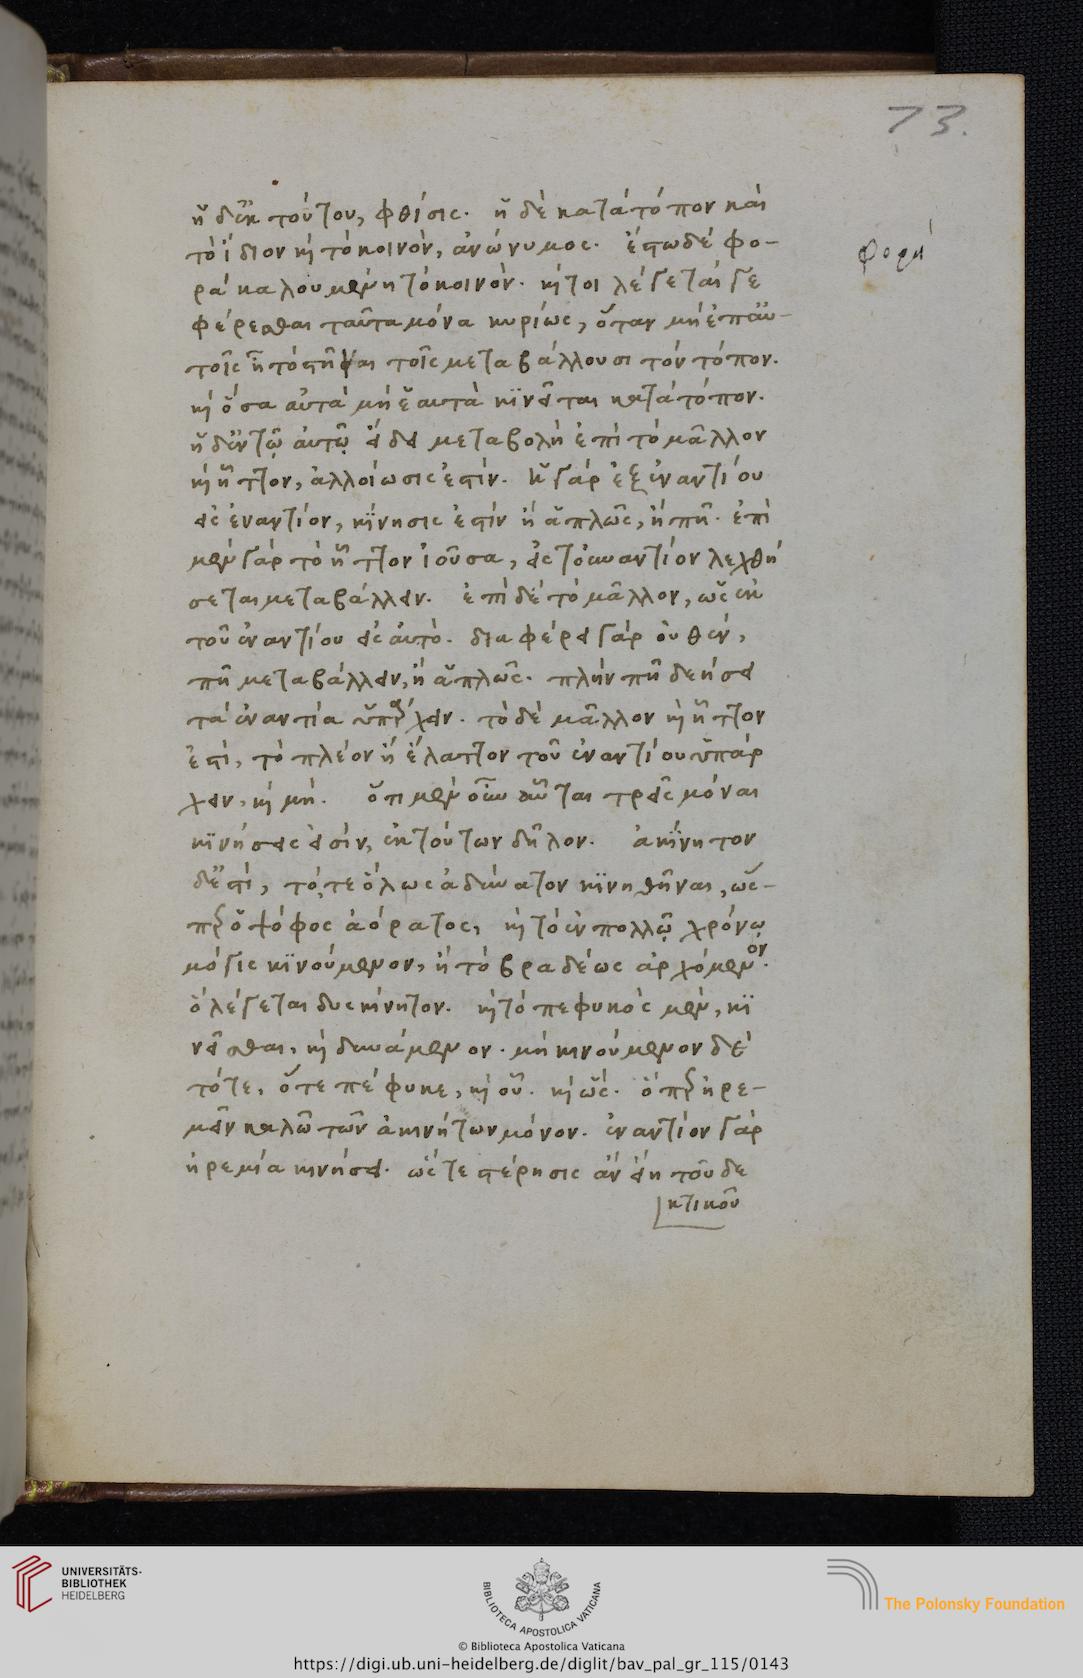 73.
ἡ δ' ἐκ τούτου, φθίσις. ἡ δὲ κατὰ τόπον καὶ
τὸ ἴδιον καὶ τὸ κοινὸν, ἀνώνυμος. ἔστω δὲ φο-
φορά
ρὰ καλουμένη τὸ κοινόν. καί τοι λέγεταί γε
φέρεσθαι ταῦτα μόνα κυρίως, ὅταν μὴ ἐπ' αὐ-
τοῖς ᾖ τὸ στῆναι τοῖς μεταβάλλουσι τὸν τόπον.
καὶ ὅσα αὐτὰ μὴ ἑαυτὰ κινεῖται κατὰ τόπον.
ἡ δ' ἐν τῷ αὐτῷ εἴδει μεταβολὴ ἐπὶ τὸ μᾶλλον
καὶ ἧττον, ἀλλοίωσις ἐστίν. ἡ γὰρ ἐξ ἐναντίου
εἰς ἐναντίον, κίνησις ἐστὶν ἢ ἁπλῶς, ἢ πῆ. ἐπὶ
μὲν γὰρ τὸ ἧττον ἰοῦσα, εἰς τὸ ἐναντίον λεχθή
σεται μεταβάλλειν. ἐπὶ δὲ τὸ μᾶλλον, ὡς ἐκ
τοῦ ἐναντίου εἰς αὐτό. διαφέρει γὰρ οὐθὲν,
πῆ μεταβάλλειν, ἢ ἁπλῶς. πλὴν πῆ δεήσει
τὰ ἐναντία ὑπάρχειν. τὸ δὲ μᾶλλον καὶ ἧττον
ἐστὶ, τὸ πλέον ἢ ἔλαττον τοῦ ἐναντίου ὑπάρ
χειν, καὶ μή. ὅτι μὲν οὖν αὗται τρεῖς μόναι
κινήσεις εἰσὶν, ἐκ τούτων δῆλον. ἀκίνητον
δ' ἐστὶ, τό, τε ὅλως ἀδύνατον κινηθῆναι, ὥσ-
περ ὁ ψόφος ἀόρατος, καὶ τὸ ἐν πολλῷ χρόνῳ
μόγις κινούμενον, ἢ τὸ βραδέως ἀρχόμενον.
ὃ λέγεται δυσκίνητον. καὶ τὸ πεφυκὸς μὲν, κι
νεῖσθαι, καὶ δυνάμενον. μὴ κινούμενον δὲ
τότε, ὅτε πέφυκε, καὶ οὗ. καὶ ὥς. ὅπερ ἠρε-
μεῖν καλῶ τῶν ἀκινήτων μόνον. ἐναντίον γὰρ
ἠρεμία κινήσει. ὥστε στέρησις ἂν εἴη τοῦ δε
κτικοῦ
UNIVERSITÄTS-
BIBLIOTHEK
HEIDELBERG
BIBLIOTECA APOSTOLICA VATICANA
The Polonsky Foundation
© Biblioteca Apostolica Vaticana
https://digi.ub.uni-heidelberg.de/diglit/bav_pal_gr_115/0143